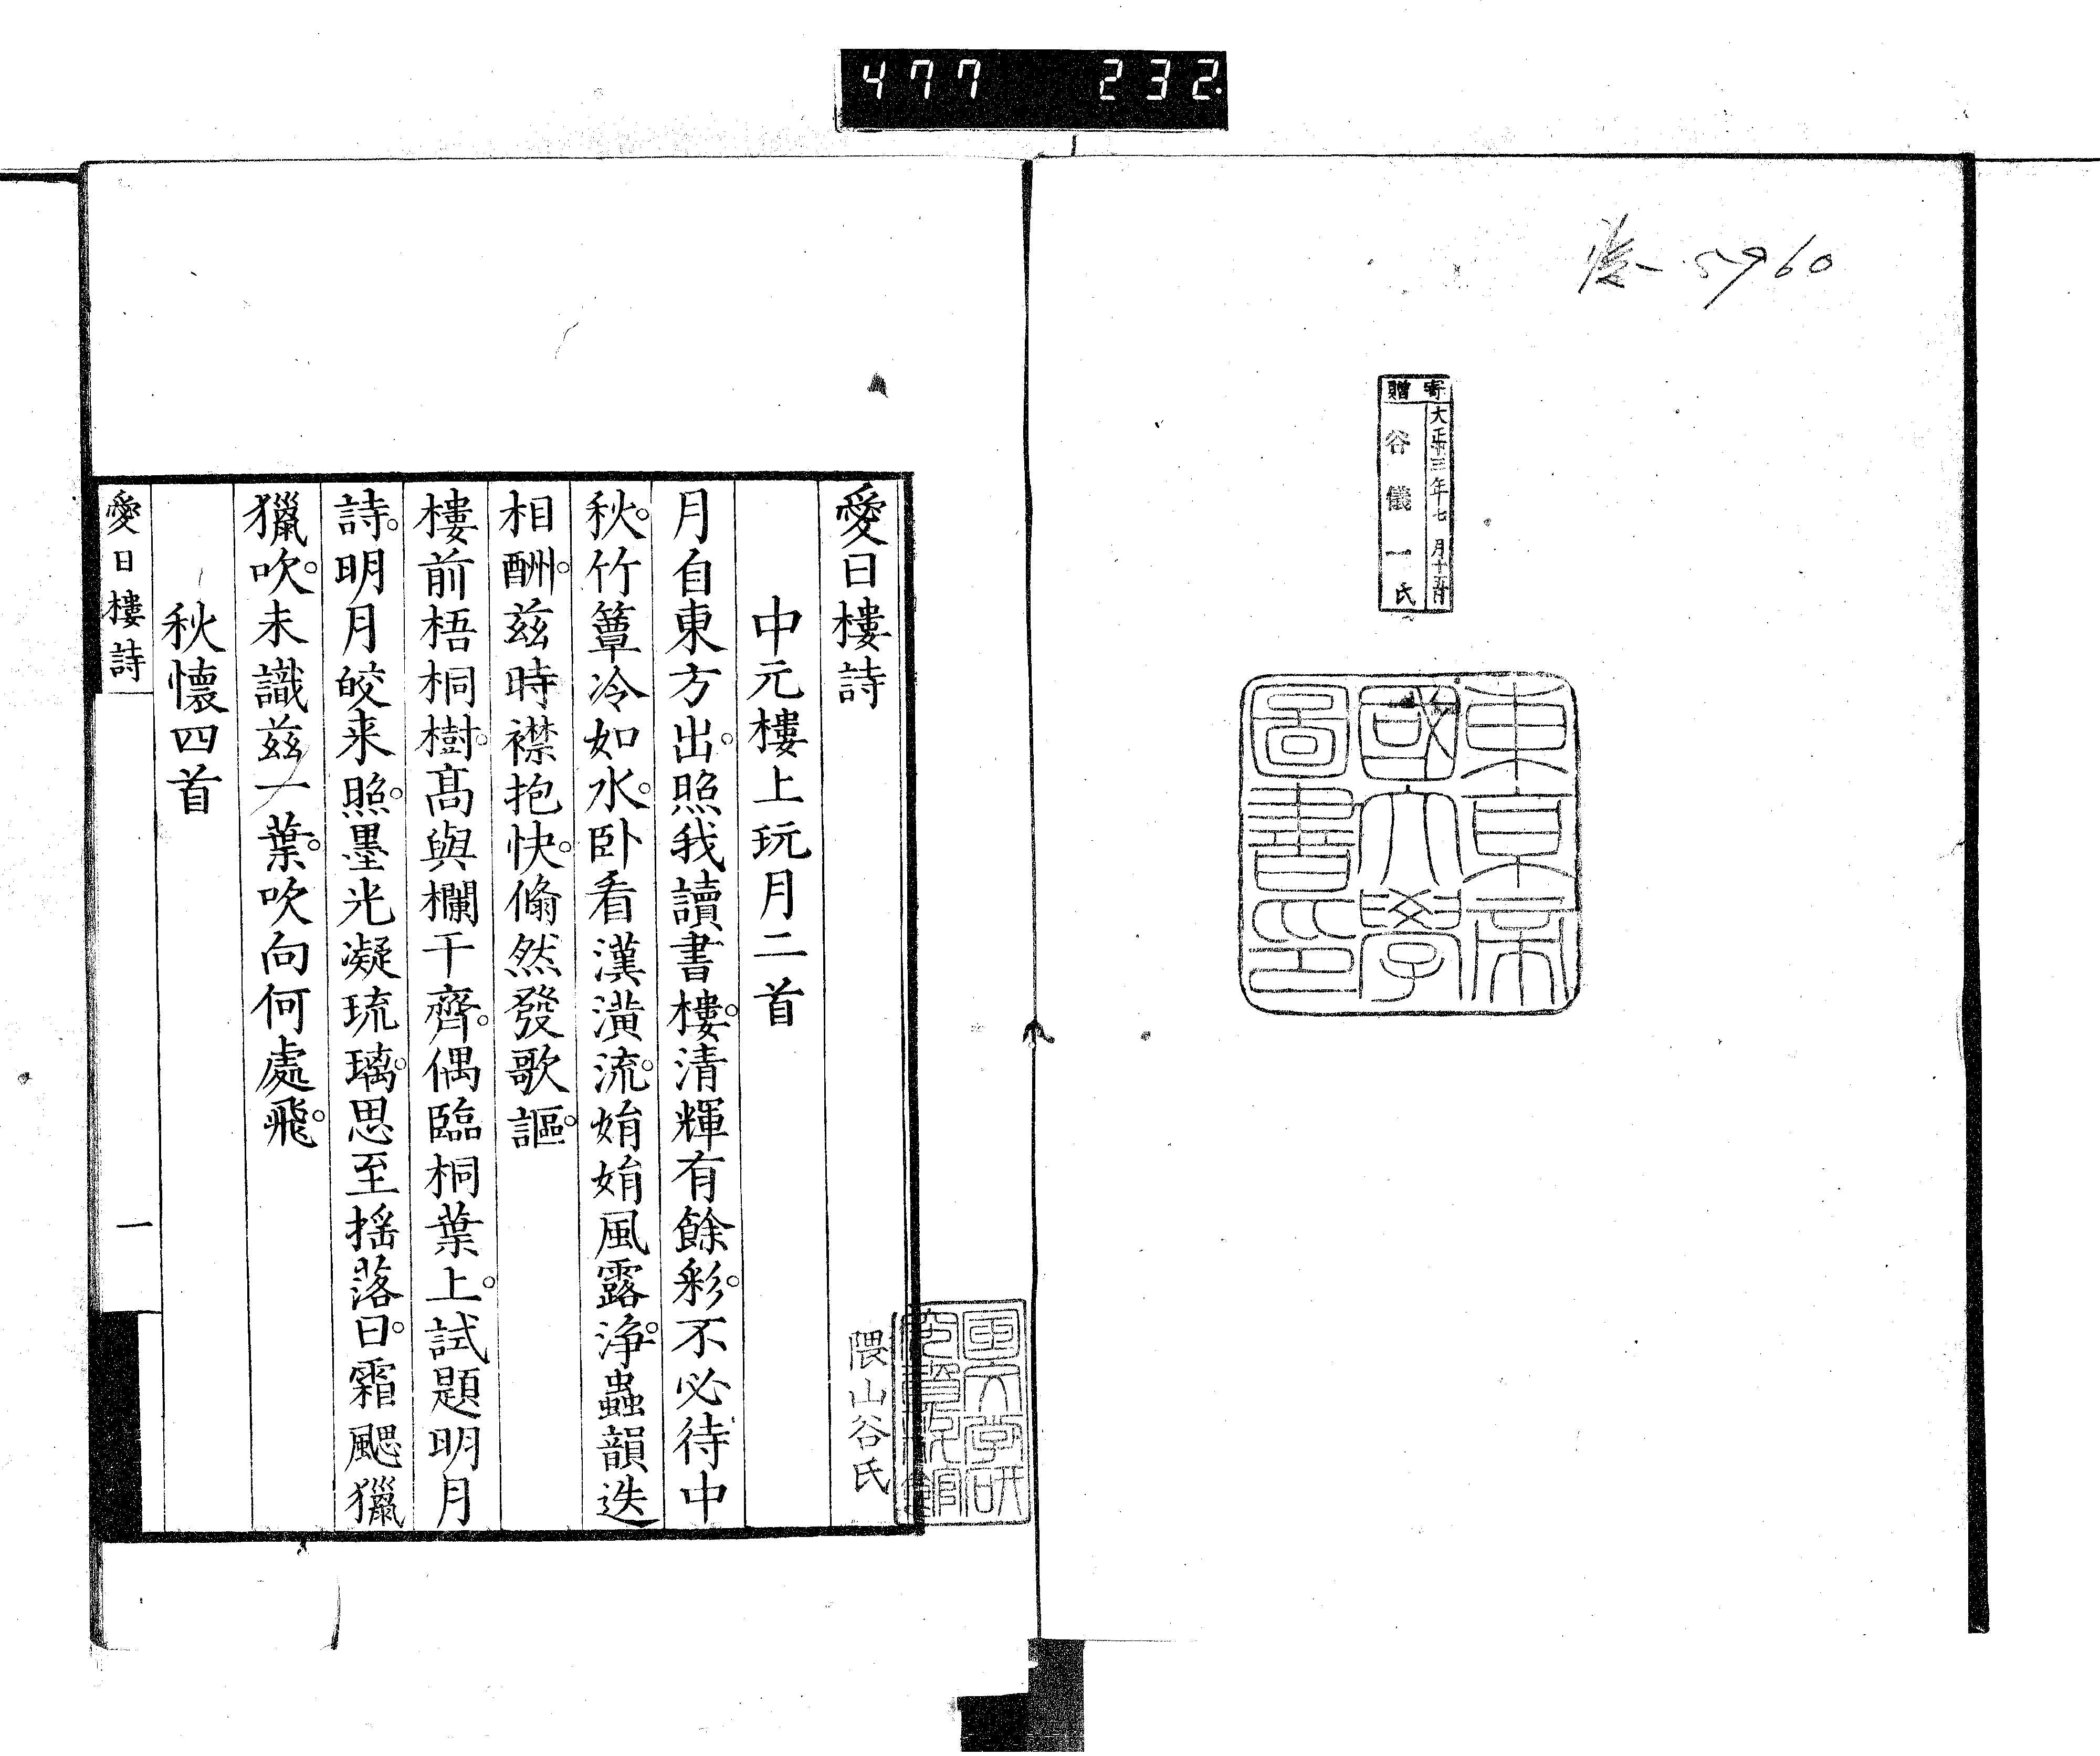 477 232.
5960
寄贈
大正十三年七月十五日
谷儀一氏
東京帝
國大學
圖書印
愛日樓詩
隈山谷氏
中元樓上玩月二首
月自東方出。照我讀書樓。清輝有餘彩。不必待中
秋。竹簟冷如水。卧看漢潢流。娟娟風露淨。蟲韻迭
相酬。茲時襟抱快。翛然發歌謳。
樓前梧桐樹。高與欄干齊。偶臨桐葉上。試題明月
詩。明月皎来照。墨光凝琉璃。思至揺落日。霜颸獵
獵吹。未識茲一葉。吹向何處飛。
秋懷四首
愛日樓詩
一